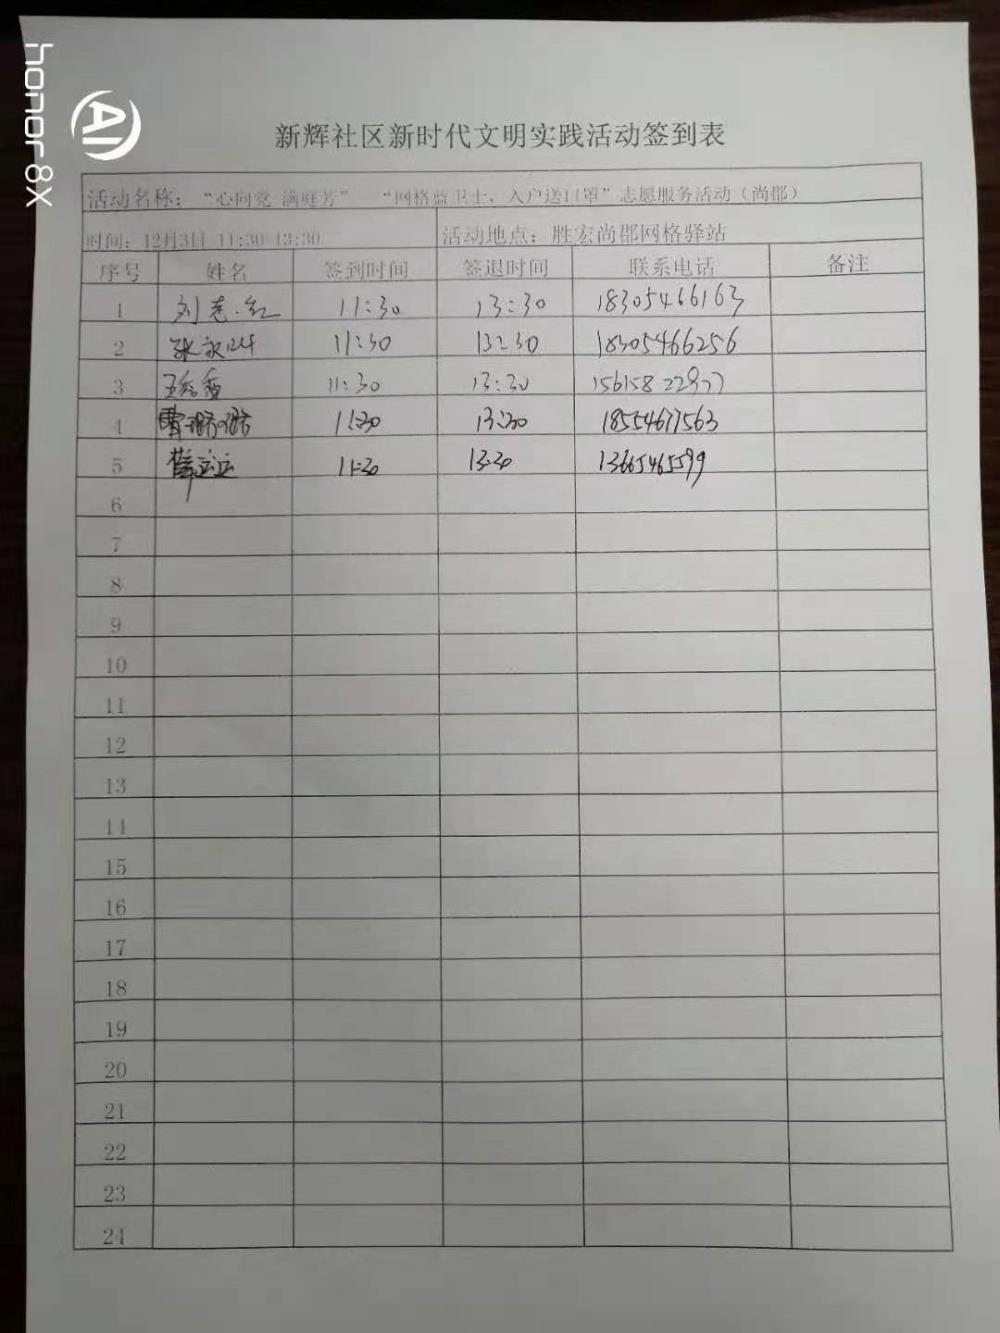 honor 8X
AI
新辉社区新时代文明实践活动签到表
活动名称：“心向党 满庭芳” “网格蓝卫士，入户送口罩”志愿服务活动（尚郡）
时间：12月3日 11:30-13:30 活动地点：胜宏尚郡网格驿站
序号 姓名 签到时间 签退时间 联系电话 备注
1 11:30 13:30 18305466163
2 11:30 13:30 18305466256
3 11:30 13:30
4 11:30 13:30 18554677563
5 11:30 13:30 13665465599
6
7
8
9
10
11
12
13
14
15
16
17
18
19
20
21
22
23
24